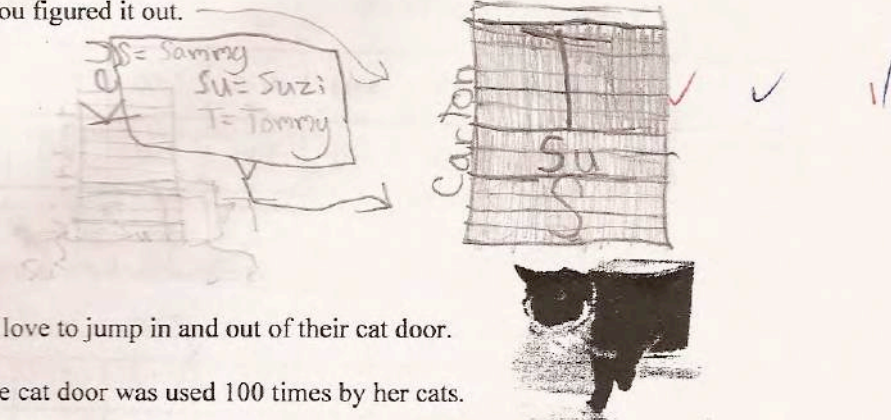 ou figured it out.
Key
S = Sammy
Su = Suzi
T = Tommy
Carton
T
Su
S
love to jump in and out of their cat door.
e cat door was used 100 times by her cats.